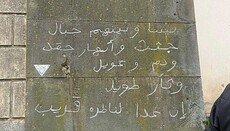 بيننا وبينهم جبال
جثث وأنهار حقد
ودم وعويل
وثأر طويل
إن غدا لناظره قريب